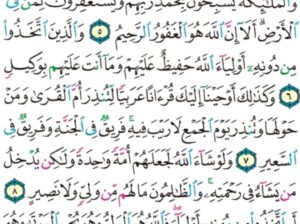 وَالْمَلَٰٓئِكَةُ يُسَبِّحُونَ بِحَمْدِ رَبِّهِمْ وَيَسْتَغْفِرُونَ لِمَن فِى
ٱلْأَرْضِ أَلَآ إِنَّ ٱللَّهَ هُوَ ٱلْغَفُورُ ٱلرَّحِيمُ ٥ وَٱلَّذِينَ ٱتَّخَذُوا۟
مِن دُونِهِۦٓ أَوْلِيَآءَ ٱللَّهُ حَفِيظٌ عَلَيْهِمْ وَمَآ أَنتَ عَلَيْهِم بِوَكِيلٍ
٦ وَكَذَٰلِكَ أَوْحَيْنَآ إِلَيْكَ قُرْءَانًا عَرَبِيًّا لِّتُنذِرَ أُمَّ ٱلْقُرَىٰ وَمَنْ
حَوْلَهَا وَتُنذِرَ يَوْمَ ٱلْجَمْعِ لَا رَيْبَ فِيهِ فَرِيقٌ فِى ٱلْجَنَّةِ وَفَرِيقٌ فِى
ٱلسَّعِيرِ ٧ وَلَوْ شَآءَ ٱللَّهُ لَجَعَلَهُمْ أُمَّةً وَٰحِدَةً وَلَٰكِن يُدْخِلُ
مَن يَشَآءُ فِى رَحْمَتِهِۦ وَٱلظَّٰلِمُونَ مَا لَهُم مِّن وَلِىٍّ وَلَا نَصِيرٍ ٨